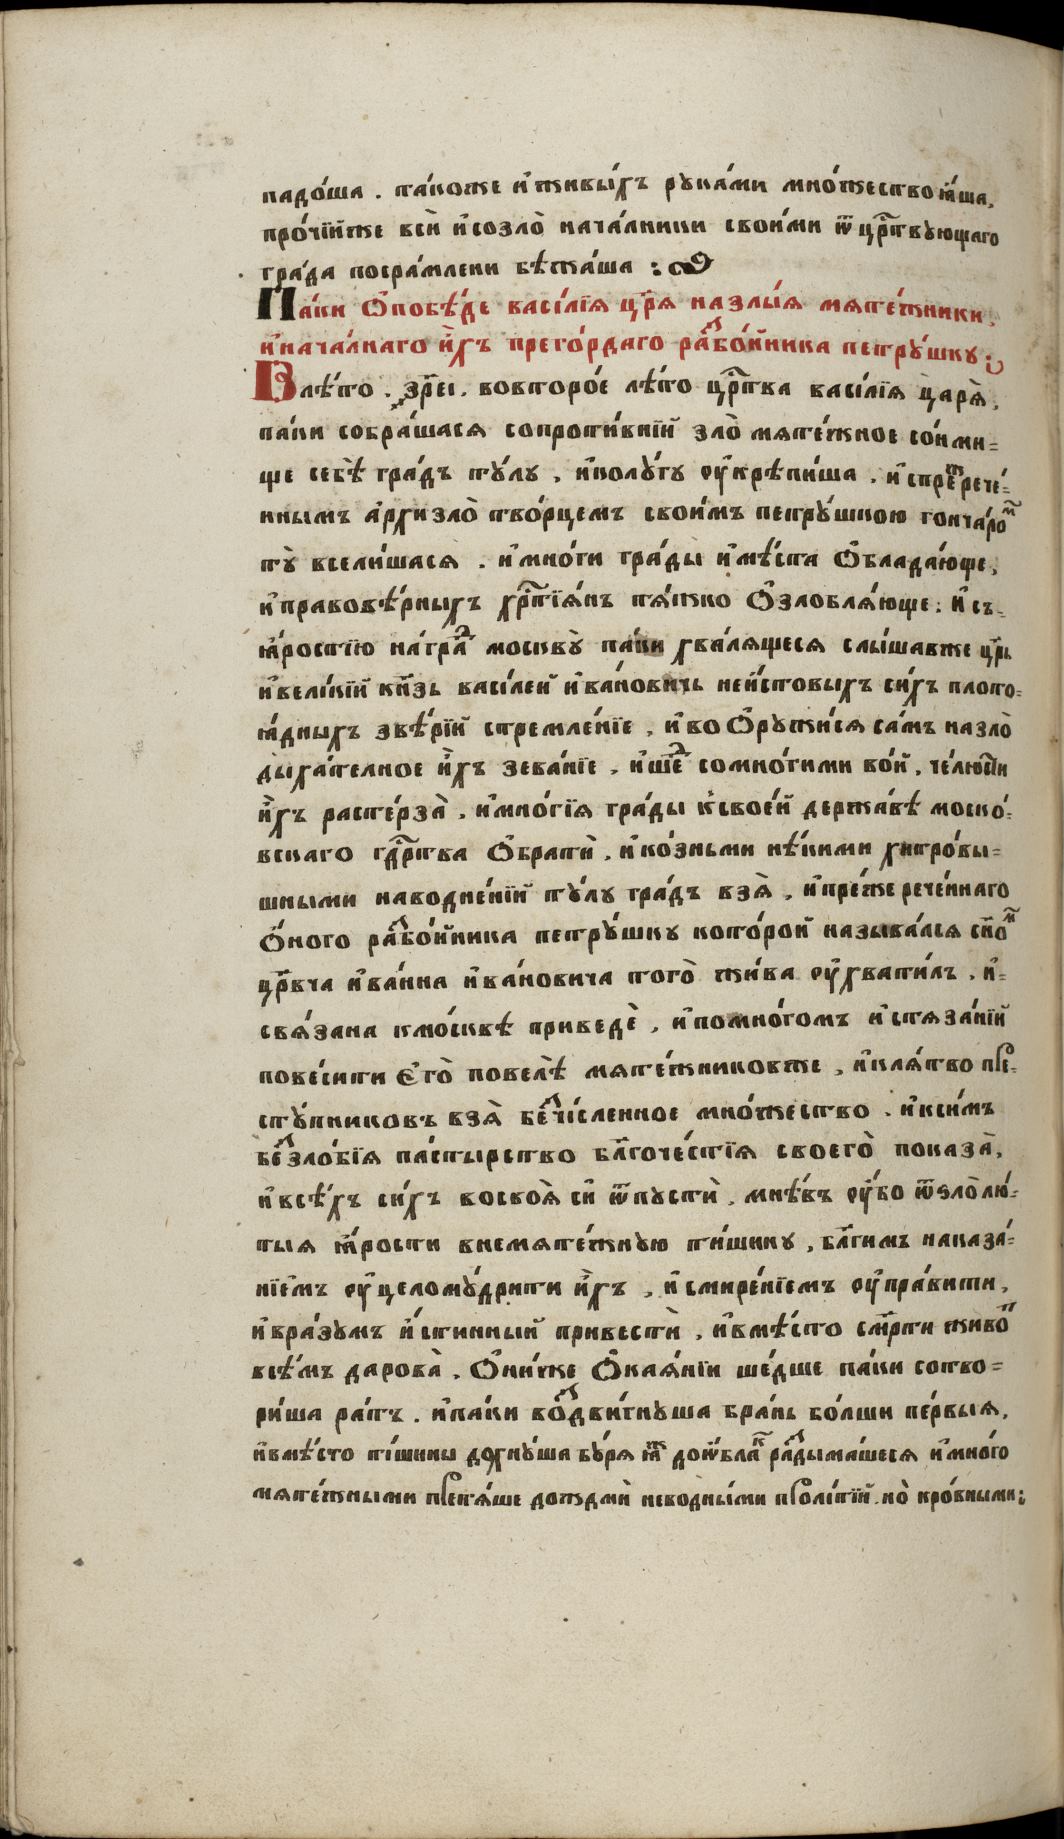 падо́ша . та́коже и҆ живы́хъ рука́ми мно́жество ꙗ҆́ша,
про́чїйже вси̑ и҆созло̀ нача́лники свои́ми ѿ црⷭ҇твующаго
гра́да посра́млени бѣжа́ша :
Па́ки Ѻ҆побѣ́де васи́лїѧ цр҃ѧ̀ назлы́ѧ мѧте́жники,
и҆нача́лнаго и҆̀хъ прего́рдаго раⷥ҇бо́йника петрꙋ́шку :
Влѣ́то . ҂зрє҃і . вовторо́е лѣ́то црⷭ҇тва васи́лїѧ царѧ̀,
па́ки собра́шасѧ сопроти́внїй зло̀ мѧте́жное со́нми=
ще себѣ̀ гра́дъ тꙋ́лу , и҆колꙋ́гу ѹ҆крѣпи́ша . и҆спреⷤ҇рече́=
ннымъ а҆рхизло̀ тво́рцемъ свои́мъ петрꙋ́шкою гончаро́ⷨ
тꙋ̀ всели́шасѧ . и҆мно́ги гра́ды и҆мѣ́ста Ѻ҆блада́юще,
и҆правовѣ́рныхъ хрⷭ҇тїѧ́нъ тѧ́жко Ѻ҆злоблѧ́юще : и҆съ=
ꙗ҆́ростїю на́граⷣ москвꙋ̀ па́ки хва́лѧщесѧ слы́шавже цр҃ь
и҆вели́кїй кн҃зь васи́леи и҆ва́новичь неи́стовыхъ си́хъ плото=
ꙗ҆́дныхъ звѣ́рїй стремле́нїе , и҆во Ѻ҆ружи́сѧ са́мъ назло̀
дыха́телное и҆̀хъ зева́нїе , и҆шеⷣ сомно́гими во́й , че́люⷭ҇ти
и҆̀хъ расте́рза̀ . и҆мно́гїѧ гра́ды к̾свое́й держа́вѣ моско́=
вскаго гдⷭ҇рⷭтва Ѻ҆братѝ , и҆ко́зньми нѣ́кими хитро́вы=
шными наводне́нїй тꙋ́лу гра́дъ взѧ̀ , и҆пре́же рече́ннаго
Ѻ҆́ного раⷥ҇бо́йника петрꙋ́шку кото́рой называ́лсѧ сн҃оⷨ
црⷭ҇вча и҆ва́нна и҆ва́новича того̀ жи́ва ѹ҆хвати́лъ . и҆=
свѧ́зана кмо́сквѣ приведѐ , и҆помно́гомъ и҆стѧза́нїй
пове́сити Є҆го̀ повелѣ̀ мѧте́жниковже , и҆клѧ́тво пре=
стꙋ́пниковъ взѧ̀ беⷥ҇чи́сленное мно́жество . и҆кси́мъ
беⷥ҇зло́бїѧ па́стырство блг҃оче́стїѧ своего̀ показа̀,
и҆всѣ́хъ си́хъ восвоѧ̀ си̑ ѿпустѝ , мнѣ́въ ѹ҆́бо ѿѕло̀лю́=
тыѧ ꙗ҆́рости внемѧте́жную ти́шину , блг҃имъ наказа́=
нїемъ ѹ҆целомꙋ́дрити и҆̀хъ , и҆смире́нїемъ ѹ҆пра́вити,
и҆вра́зумъ и҆́стинный привестѝ , и҆вмѣ́сто смр҃ти живоⷮ
всѣ́мъ дарова̀ . Ѻ҆ни́же Ѻ҆кая́нїи ше́дше па́ки сотво=
ри́ша ра́тъ . и҆па́ки воⷥ҇дви́гнуша бра́нь бо́лши пе́рвыѧ,
и҆вмѣ́сто ти́шины дохнꙋ́ша бꙋ́рѧ ꙗ҆ⷦ҇ доѡ҆́блаⷦ҇ раⷥ҇дыма́шесѧ и҆мно́го
мѧте́жными претѧ́ше дождмѝ неводны́ми проли́тїй но̀ кро́вными: